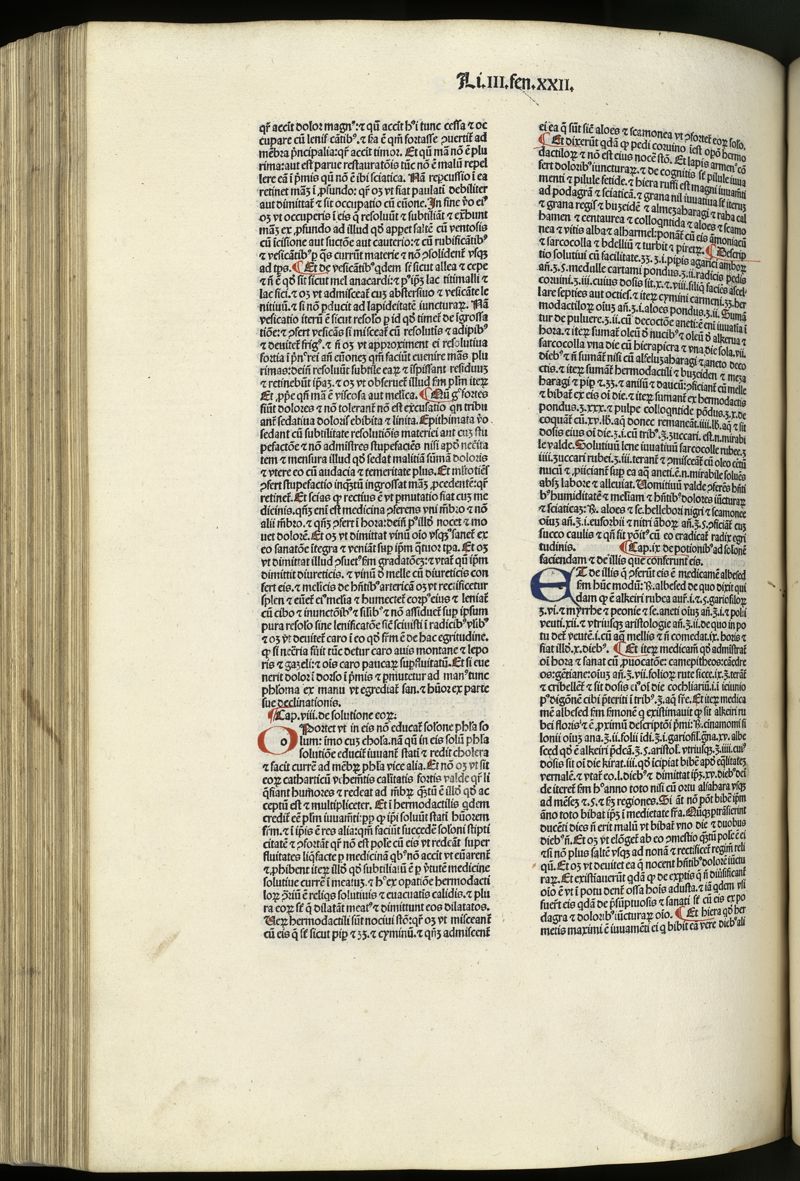 Li.III.fen.XXII.
qr̄ accit dolor magnꝰ:⁊ qñ accit hoi tunc cessa ⁊ oc
cupare cũ lenifˀ cãtibꝰ.⁊ fra ē qm̄ fortasse ꝯuertit̃ ad
mẽbra pⁱncipalia:qr̄ accit timor. Et qñ mã nõ ē plu
rima:aut est parue restauratõis tũc nõ ē malũ repel
lere eã i pⁱmis qñ nõ ē ibi sciatica. Nã repcussio i ea
retinet mãʒ i ꝓfundo: qr̄ oʒ vt fiat paulati debiliter
aut dimittat̃ ⁊ sit occupatio cũ cũone. In fine ṽo ei
oʒ vt occuperis i eis q̃ resoluũt ⁊ subtiliãt ⁊ exhunt
mãʒ ex ꝓfundo ad illud qd̃ appet saltẽ cũ ventosis
cũ icissione aut suctõe aut cauterio:⁊ cũ rubificãtibꝰ
⁊ vesicãtibꝰ p q̃s currũt materie ⁊ nõ ꝯsolident̃ vsqʒ
ad tp̃s. ¶ Et de vesicãtibꝰ qdem st̃ sicut allea ⁊ cepe
⁊ ñ ē qd̃ sit sicut mel anacardi:⁊ pꝰ ip̃ʒ lac titimalli ⁊
lac fici.⁊ oʒ vt admisceat̃ cuʒ abstersiuo ⁊ vesicãte le
nitiuũ.⁊ si nõ pducit ad lapideitatẽ iuncturaꝝ. Nã
vesicatio iterũ ē sicut resolo p id qd̃ timet̃ de igrossa
tiõe:⁊ ꝯfert vesicãs si misceat̃ cũ resolutis ⁊ adipibꝰ
⁊ deuitet̃ frigꝰ.⁊ ñ oʒ vt approximent ei resolutiua
fortia i pⁱnⁱ rei añ cũones qm̃ faciũt euenire mãs plu
rimas:dein̄ resoluũt subtile eaꝝ ⁊ ispissant residuũ
⁊ retinebũt ip̃aʒ.⁊ oʒ vt obseruet̃ illud fm̃ plm̃ iteꝝ
Et ꝓp̃e qñ mã ē viscosa aut mellica. ¶ Qñ gͦ fortes
fiũt dolores ⁊ nõ tolerant̃ nõ est excusatio qn tribu
ant̃ sedatiua doloris ebibita ⁊ linita. Epithimata ṽo
sedant cũ subtilitate resolutiõis materiei aut cuʒ stu
pefactõe ⁊ nõ admistres stupefaciẽs nisi apd̃ necita
tem ⁊ mensura illud qd̃ sedat malitiã sũmã doloris
⁊ vtere eo cũ audacia ⁊ temeritate plus. Et mltotiẽs
ꝯfert stupefactio inqʒtũ ingrossat mãʒ ꝓcedentẽ:qr̄
retinet̃. Et scias ꝙ rectius ē vt pmutatio fiat cuʒ me
dicinis.qñqʒ em̃ est medicina ꝯferens vni mẽbro ⁊ nõ
alii mẽbro.⁊ qñqʒ ꝯfert i hora:dein̄ pꝰ illõ nocet ⁊ mo
uet dolorẽ. Et oʒ vt dimittat vinũ oĩo vsqʒ sanet̃ ex
eo sanatõe ĩtegra ⁊ veniãt sup ip̃m quattuor tp̃a. Et oʒ
vt dimittat illud ꝯsuetꝰ fm̃ gradatõeʒ:⁊ vtat̃ qñ ip̃m
dimittit diureticis. ⁊ vinũ d̃ melle cũ diureticis con
fert eis.⁊ melicis de hñtibꝰ artericã oʒ vt rectificetur
splen ⁊ euẽt eiꝰ melia ⁊ humectet̃ corpꝰ eius ⁊ leniat̃
cũ cibo ⁊ inunctõibꝰ ⁊ silibꝰ ⁊ nõ assiduet̃ sup ipsum
pura resolo sine lenificatõe sic̃ sciuisti i radicibꝰ vlibꝰ
⁊ oʒ vt deuitet̃ caro i eo qd̃ fm̃ ē de hac egritudine.
ꝙ si necria fũit tũc detur caro auis montane ⁊ lepo
ris ⁊ gazeli:⁊ oĩs caro paucaꝝ supfluitatũ. Et si eue
nerit dolor i dorso i pⁱmis ⁊ pmutetur ad manꝰ tunc
phl̃oma ex manu vt egrediat̃ san.⁊ hũoꝛ ex parte
sue declinationis.
¶ Cap.viii. de solutione eoꝝ.
Oportet vt in eis nõ educat̃ solone phl̃a so
lum: ĩmo cuʒ chol̃a.nã qñ in eis solũ phl̃a
solutiõe educit̃ iuuant stati ⁊ redit cholera
⁊ facit currẽ ad mẽbꝝ phl̃a vice alia. Et nõ oʒ vt sit
eoꝝ catharticũ vehemẽtis caliditatis fortis valde qr̄ li
q̃fiant humores ⁊ redeat ad mẽbꝝ q̃ʒtũ ē illõ qd̃ ac
ceptũ est ⁊ multipliceter. Et i hermodactilis qdem
credit̃ eẽ plm̃ iuuamti: ꝑp ꝙ ip̃i soluũt stati hũorem
frm̃.⁊ i ip̃is ē res alia:qm̃ faciũt succedẽ soloni stipti
citatẽ ⁊ ꝯfortãt qr̄ nõ est posse cũ eis vt redeãt super
fluitates liq̃facte p medicinã qbꝰ nõ accit vt euãrent
⁊ ꝓhibent iteꝝ illõ qd̃ subtiliatũ ē p ṽtutẽ medicine
solutiue currẽ i meatꝰ.⁊ hꝰ ex opatiõe hermodacti
loꝝ ꝯriũ ē reliqs solutiuis ⁊ euacuatis calidis.⁊ plu
ra eoꝝ st̃ q̃ dilatãt meatꝰ ⁊ dimittunt eos dilatatos.
Veꝝ hermodactili sũt nociui stõ:qr̄ oʒ vt misceant̃
cũ eis q̃ st̃ sicut pip ⁊ ʒʒ.⁊ cyminũ.⁊ qñqʒ admiscent̃
ei ea q̃ sũt sic̃ aloes ⁊ scamonea vt ꝯfortet̃ eoꝝ solo.
¶ Et dixerũt qdã ꝙ pedi coruino iest opõ hermo
dactiloꝝ ⁊ nõ est eius nocẽ stõ. Et lapis armenꝰ cõ
fert doloribꝰ iuncturaꝝ.⁊ de cognitis st̃ pilule iuua
menti ⁊ pilule fetide.⁊ hiera ruffi est magni iuuamti
ad podagrã ⁊ sciaticã.⁊ grana nil iuuatiua st̃ iterũ
⁊ grana regis ⁊ buʒeidẽ ⁊ almeʒaharagi ⁊ raba cal
hamen ⁊ centaurea ⁊ colloqntida ⁊ aloes ⁊ scamo
nea ⁊ vitis alba ⁊ alharmel:ponãt̃ cũ eis armoniacũ
⁊ sarcocolla ⁊ bdelliũ ⁊ turbit ⁊ piretꝝ. ¶ Descrip
tio solutiui cũ facilitate.ʒʒ.ʒ.i.pipis agarici amboꝝ
añ.ʒ.5.medulle cartami pondus.ʒ.ii.radicis pedis
coruini.ʒ.iii.cuius dosis sit.x.⁊.viii.siliq̃ faciẽs assel
lare septies aut octies.⁊ iteꝝ cymini carmeni.ʒʒ.her
modactiloꝝ oiuʒ añ.ʒ.i.aloes pondus.ʒ.ii. Sumã
tur de puluere.ʒ.ii.cũ decoctõe aneti:ẽ em̃ iuuatia i
hora.⁊ iteꝝ sumat̃ oleũ d̃ nucibꝰ ⁊ oleũ d̃ alkerua ⁊
sarcocolla vna die cũ hierapicra ⁊ vna die sola.vii.
diebꝰ ⁊ ñ sumãt̃ nisi cũ alfeluʒaharagi ⁊ aneto deco
ctis.⁊ iteꝝ sumãt̃ hermodactili ⁊ buʒeiden ⁊ meʒa
haragi ⁊ pip ⁊ ʒʒ.⁊ anisũ ⁊ daucũ:ꝯficiant̃ cũ melle
⁊ bibat̃ ex eis oi die.⁊ iteꝝ sumant̃ ex hermodactis
pondus.ʒ.xxx.⁊ pulpe colloqntide põdus.ʒ.x.de
coquãt̃ cũ.xv.lb.aq̃ donec remaneat̃.iiii.lb.aq̃ ⁊ sit
dosis eius oi die.ʒ.i.cũ tribꝰ.ʒ.zuccari.est.n.mirabi
le valde. Solutiuũ lene iuuatiuũ sarcocolle rubee.ʒ
iiii.zuccari rubei.ʒ.iii.terant̃ ⁊ ꝯmisceat̃ cũ oleo cẽtũ
nucũ ⁊ ꝓiiciant̃ sup ea aq̃ aneti.ẽ.n.mirabile soluẽs
absqʒ labore ⁊ alleuiat. Vomitiuũ valde ꝯferẽs hñti
bꝰ humiditatẽ ⁊ meliam ⁊ hñtibꝰ dolores iũcturaꝝ
⁊ sciaticaʒ:℞. aloes ⁊ se.hellebori nigri ⁊ scamonee
oiuʒ añ.ʒ.i.euforbii ⁊ nitri ãboꝝ añ.ʒ.5.ꝯficiãt̃ cuʒ
succo caulis ⁊ qñ sit võitꝰ cũ eo eradicat̃ radix egri
tudinis. ¶ Cap.ix de potionibꝰ ad solonẽ
faciendam ⁊ de illis que conferunt eis.
ET de illis q̃ ꝯferũt eis ē medicamẽ albesed
fm̃ hũc modũ: ℞. albesed de quo dixit qui
dam ꝙ ē alkeiri rubea auf.i.⁊.5.gariofiloꝝ
ʒ.vi.⁊ myrrhe ⁊ peonie ⁊ se.aneti oiuʒ añ.ʒ.i.⁊ poli
veuti.xii.⁊ vtriusqʒ aristologie añ.ʒ.ii.de quo in po
tu det̃ veutẽ.i.cũ aq̃ mellis ⁊ ñ comedat.ix.horis ⁊
fiat illõ.x.diebꝰ. ¶ Et iteꝝ medicam̃ qd̃ admistrat̃
oi hora ⁊ sanat cũ ꝓuocatõe: camepitheos:cãedre
os:gẽtiane:oiuʒ añ.ʒ.vii.folioꝝ rute sicce.ix.ʒ.terãt̃
⁊ cribellet̃ ⁊ sit dosis eiꝰ oi die cochliariũ.i.i ieiunio
pꝰ digõnẽ cibi pⁱteriti i tribꝰ.ʒ.aq̃ frẽ. Et iteꝝ medica
mẽ albesed fm̃ fmonẽ q̃ existimauit ꝙ sit alkeiri ru
bei floris:⁊ ē ꝓximũ descriptõi pⁱmi:℞.cinamomi si
lonii oiuʒ ana.ʒ.ii.folii idi.ʒ.i.gariofil.grana.xv.albe
sced qd̃ ē alkeiri pⁱdcã.ʒ.5.aristol.vtriusqʒ.ʒ.iiii.cuiꝰ
dosis sit oi die kirat.iii.qd̃ icipiat bibẽ apd̃ eq̃litateʒ
vernalẽ.⁊ vtat̃ eo.l.diebꝰ ⁊ dimittat ip̃ʒ.xv.diebꝰ dei
de iteret̃ fm̃ hꝰ anno toto nisi cũ ortu alsahara vsqʒ
ad mẽseʒ.⁊.5.⁊ fʒ regiones. Si añt nõ põt bibẽ ip̃m
ãno toto bibat ip̃ʒ i medietate frã. Nũqʒ ptrãsierint
ducẽti dies ñ erit malũ vt bibat̃ vno die ⁊ duobus
diebꝰ ñ. Et oʒ vt elõget̃ ab eo ꝯmestio q̃ʒtũ posse ē ei
⁊ si nõ plus saltẽ vsqʒ ad nonã ⁊ rectificet̃ regim̃ reli
qũ. Et oʒ vt deuitet̃ ea q̃ nocent hñtibꝰ dolorẽ iũctu
raꝝ. Et existiauerũt qdã ꝙ de exptis q̃ ñ diuisificant̃
oĩo ē vt i potu dent̃ ossa hois adusta.⁊ iã qdem vsi
fuert̃ eis qdã de pⁱsũptuosis ⁊ sanati st̃ cũ eis ex po
dagra ⁊ doloribꝰ iũcturaꝝ oĩo. ¶ Et hiera qd̃ her
metis maximi ē iuuamẽti ei q̃ bibit ea vere diebꝰ ali